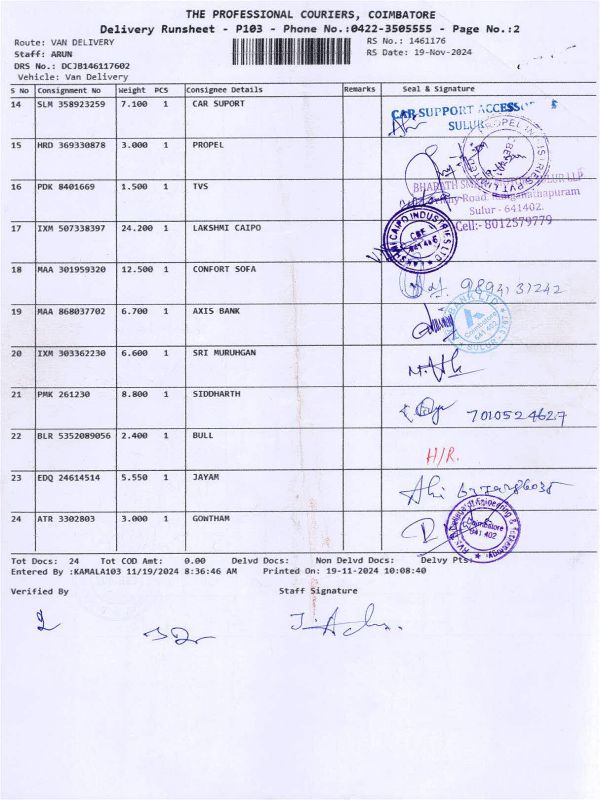 THE PROFESSIONAL COURIERS, COIMBATORE
Delivery Runsheet - P103 - Phone No.:0422-3505555 - Page No.:2
Route: VAN DELIVERY RS No.: 1461176
Staff: ARUN RS Date: 19-Nov-2024
DRS No.: DCJB146117602
Vehicle: Van Delivery
S No Consignment No Weight PCS Consignee Details Remarks Seal & Signature
14 SLM 358923259 7.100 1 CAR SUPORT
CAR SUPPORT
SULUR
15 HRD 369330878 3.000 1 PROPEL
16 PDK 8401669 1.500 1 TVS
BHARATH
Sulur - 641402.
Cell:- 8012579779
17 IXM 507338397 24.200 1 LAKSHMI CAIPO
LAKSHMI CAIPO INDUSTRIES LTD
18 MAA 301959320 12.500 1 CONFORT SOFA
9894131242
19 MAA 868037702 6.700 1 AXIS BANK
BANK LTD
Coimbatore
641 402
SULUR
20 IXM 303362230 6.600 1 SRI MURUHGAN
21 PMK 261230 8.800 1 SIDDHARTH
7010524627
22 BLR 5352089056 2.400 1 BULL
H/R.
23 EDQ 24614514 5.550 1 JAYAM
24 ATR 3302803 3.000 1 GOWTHAM
Coimbatore
641 402
Tot Docs: 24 Tot COD Amt: 0.00 Delvd Docs: Non Delvd Docs: Delvy Pts:
Entered By :KAMALA103 11/19/2024 8:36:46 AM Printed On: 19-11-2024 10:08:40
Verified By Staff Signature